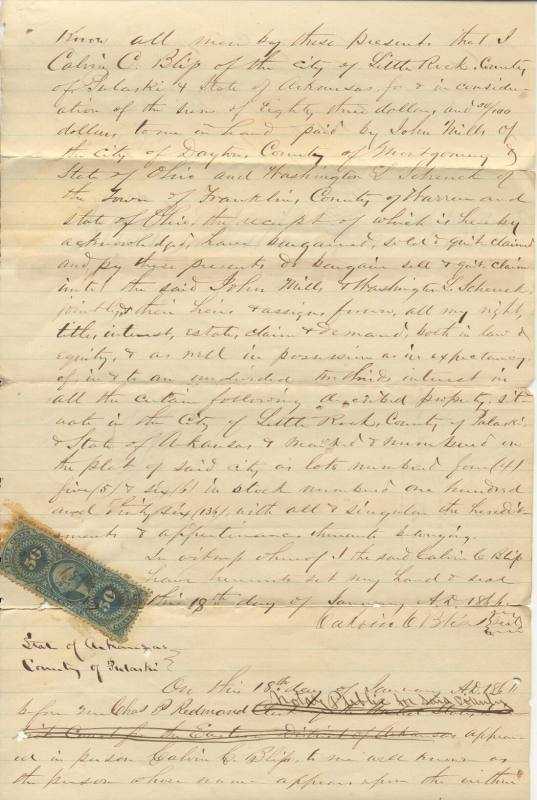 Know all men by these presents that I
Calvin C. Bliss of the city of Little Rock County
of Pulaski & State of Arkansas for & in consider-
ation of the sum of Eighty three dollars and /100
dollars to me in hand paid by John Mills of
the city of Dayton County of Montgomery &
State of Ohio and Washington L. Schenck of
the Town of Franklin, County of Warren and
state of Ohio the receipt of which is hereby
acknowledged, have bargained, sold & quit claimed
and by these presents do bargain sell & quit claim
unto the said John Mills & Washington L. Schenck
jointly & their heirs & assigns forever, all my right,
title, interest, estate, claim & demand, both in law &
equity, & as well in possession as in expectancy
of, in & to an undivided interest in
all the certain following described property, sit-
uate in the City of Little Rock, County of Pulaski
& State of Arkansas & marked & numbered on
the plat of said city as lots numbered four (4)
five (5) & six (6) in block numbered one hundred
and thirty six (136), with all & singular the heredit-
aments & appurtenances thereunto belonging.
In witness whereof I the said Calvin C Bliss
have hereunto set my hand & seal
this 18th day of January A.D. 186
Calvin C Bliss Seal
50 50
State of Arkansas
County of Pulaski
On this 18th day of January A.D. 186
Notary Public in said County
before me Chas P Redmond
Court for the Eastern District of Arkansas appear-
ed in person Calvin C. Bliss, to me well known as
the person whose name appears upon the within